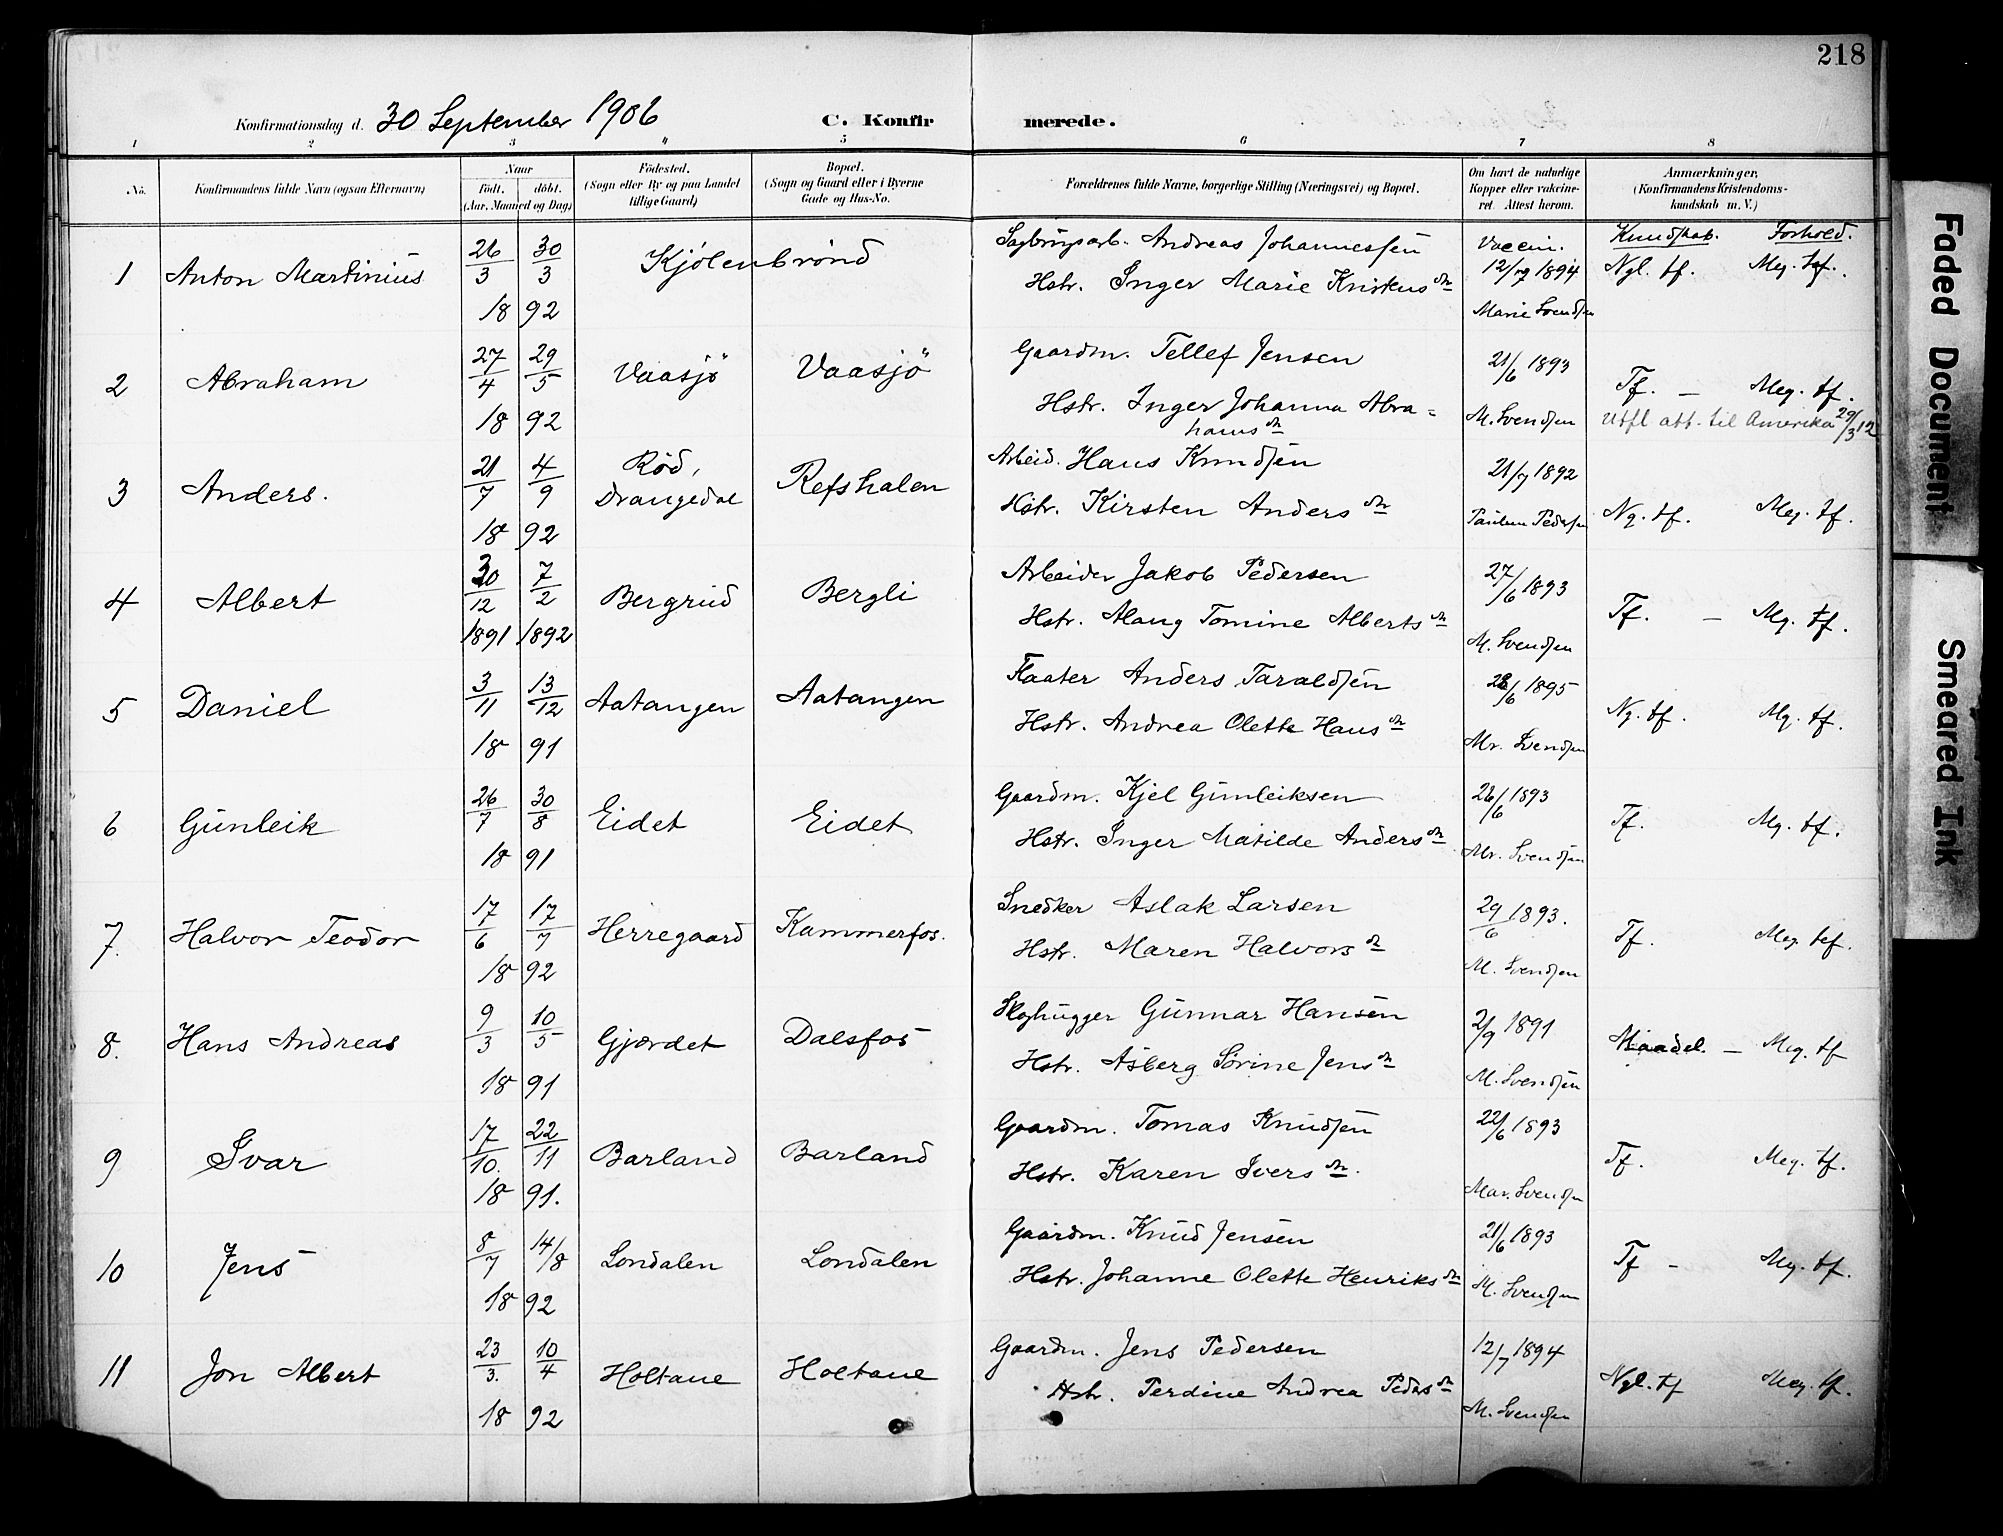 218
Konfirmationsdag d. 30 September 1906 C. Konfir merede.
1 2 3 4 5 6 7 8
No. Konfirmandens fulde Navn (ogsaa Efternavn) Naar Födt. döbt. (Aar, Maaned og Dag) Födested. (Sogn eller By og paa Landet tillige Gaard) Bopæl. (Sogn og Gaard eller i Byerne Gade og Hus-No. Forældrenes fulde Navne, borgerlige Stilling (Næringsvei) og Bopæl. Om havt de naturlige Kopper eller vakcineret. Attest herom. Anmærkninger, (Konfirmandens Kristendomskundskab m. V.)
Kundskab. Forhold.
1 Anton Martinius 26/3 30/3 Kjölenbrönd Sagbrugsarb. Andreas Johannessen Vaccin. 12/7 1894 Ngl. tf. Meg. tf.
18 92 Hstr. Inger Marie Kristensdtr Marie Svendsen
2 Abraham 27/4 29/5 Vaasjö Vaasjö Gaardm. Tellef Jensen 21/6 1893 Tf. – Meg. tf.
18 92 Hstr. Inger Johanna Abra= M. Svendsen Utfl att. til Amerika 29/3 12
hamsdtr
3 Anders. 21/7 4/9 Röd, Drangedal Refshalen Arbeid. Hans Knudsen 21/7 1892 Ng. tf. Meg. tf.
18 92 Hstr. Kirsten Andersdtr Pedersen
4 Albert 30/12 7/2 Bergrud Bergli Arbeider Jakob Pedersen 27/6 1893 Tf. – Mg. tf.
1891 1892 Hstr. Tomine Albertsdtr M. Svendsen
5 Daniel 3/11 13/12 Aatangen Aatangen Flaater Anders Taraldsen 28/6 1895 Ng. tf. Mg. tf.
18 91 Hstr. Andrea Olette Hansdtr Mr. Svendsen
6 Gunleik 26/7 30/8 Eidet Eidet Gaardm. Kjel Gunleiksen /6 1893 Tf. Mg. tf.
18 91 Hstr. Inger Matilde Andersdtr Mr. Svendsen
7. Halvor Teodor 17/6 17/7 Herregaard Kammerfos. Snedker Aslak Larsen 29/6 1893. Tf. Meg. tf.
18 92 Hstr. Maren Halvorsdtr M. Svendsen
8. Hans Andreas 9/3 10/5 Gjærdet Dalsfos Skoghugger Gunnar Hansen 2/9 1891 Maadel. – Meg. tf
18 91 Hstr. Asberg Sörine Jensdtr M. Svendsen
9 Ivar 17/10. 22/11 Barland Barland Gaardm. Tomas Knudsen 22/6 1893 Tf. Meg. tf.
18 91. Hstr. Karen Iversdtr. Mar. Svendsen
10 Jens 8/7 14/8 Londalen Londalen Gaardm. Knud Jensen 21/6 1893 Tf – Mg. tf.
18 92 Hstr. Johanne Olette Henriksdtr M. Svendsen
11 Jon Albert 23/3. 10/4 Holtane Holtane Gaardm. Jens Pedersen 12/7 1894 Ngl. tf Meg. tf.
18 92 Hstr. Perdine Andrea Pedersdtr M. Svendsen
Faded Document
Smeared Ink